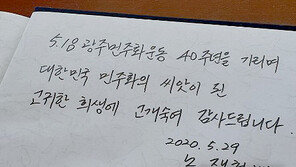 5.18 광주민주화운동 40주년을 기리며
대한민국 민주화의 씨앗이 된
고귀한 희생에 고개숙여 감사드립니다.
2020. 5. 29
노 재헌